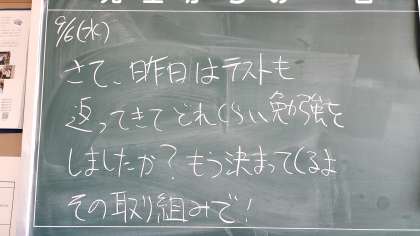 9/6(水)
さて、昨日はテストも
返ってきてどれくらい勉強を
しましたか？もう決まってくるよ
その取り組みで！